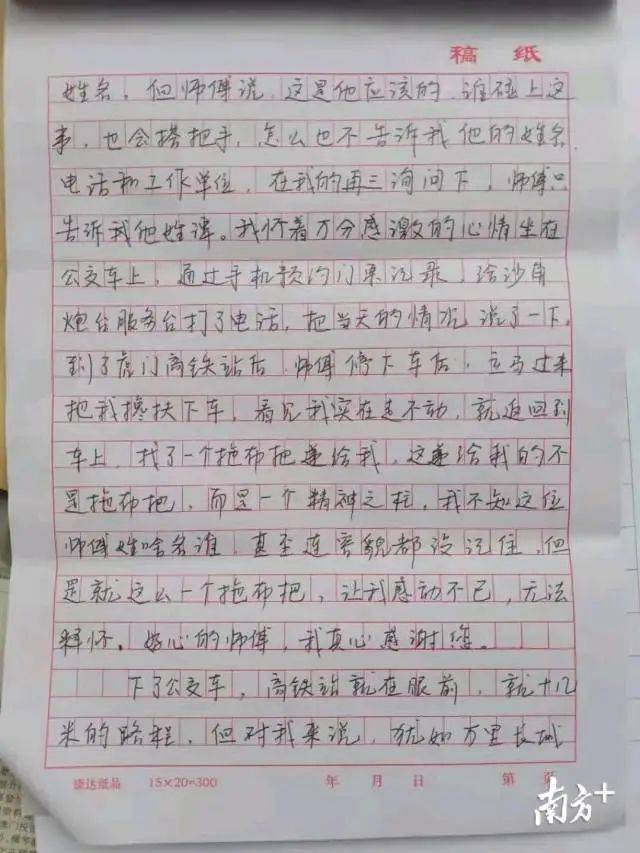 稿 纸
姓名，但师傅说，这是他应该的，谁碰上这
事，也会搭把手，怎么也不告诉我他的姓名，
电话和工作单位，在我的再三询问下，师傅只
告诉我他姓谭。我怀着万分感激的心情坐在
公交车上，通过手机预约门票记录，给沙角
炮台服务台打了电话，把当天的情况说了一下。
到了虎门高铁站后，师傅停下车后，立马过来
把我搀扶下车，看见我实在走不动，就返回到
车上，找了一个拖布把递给我，这递给我的不
是拖布把，而是一个精神之柱，我不知这位
师傅姓啥名谁，甚至连容貌都没记住，但
是就这么一个拖布把，让我感动不已，无法
释怀。好心的师傅，我真心感谢您。
下了公交车，高铁站就在眼前，就十几
米的路程，但对我来说，犹如万里长城
康达纸品 15×20=300 年 月 日 第 页
南方+